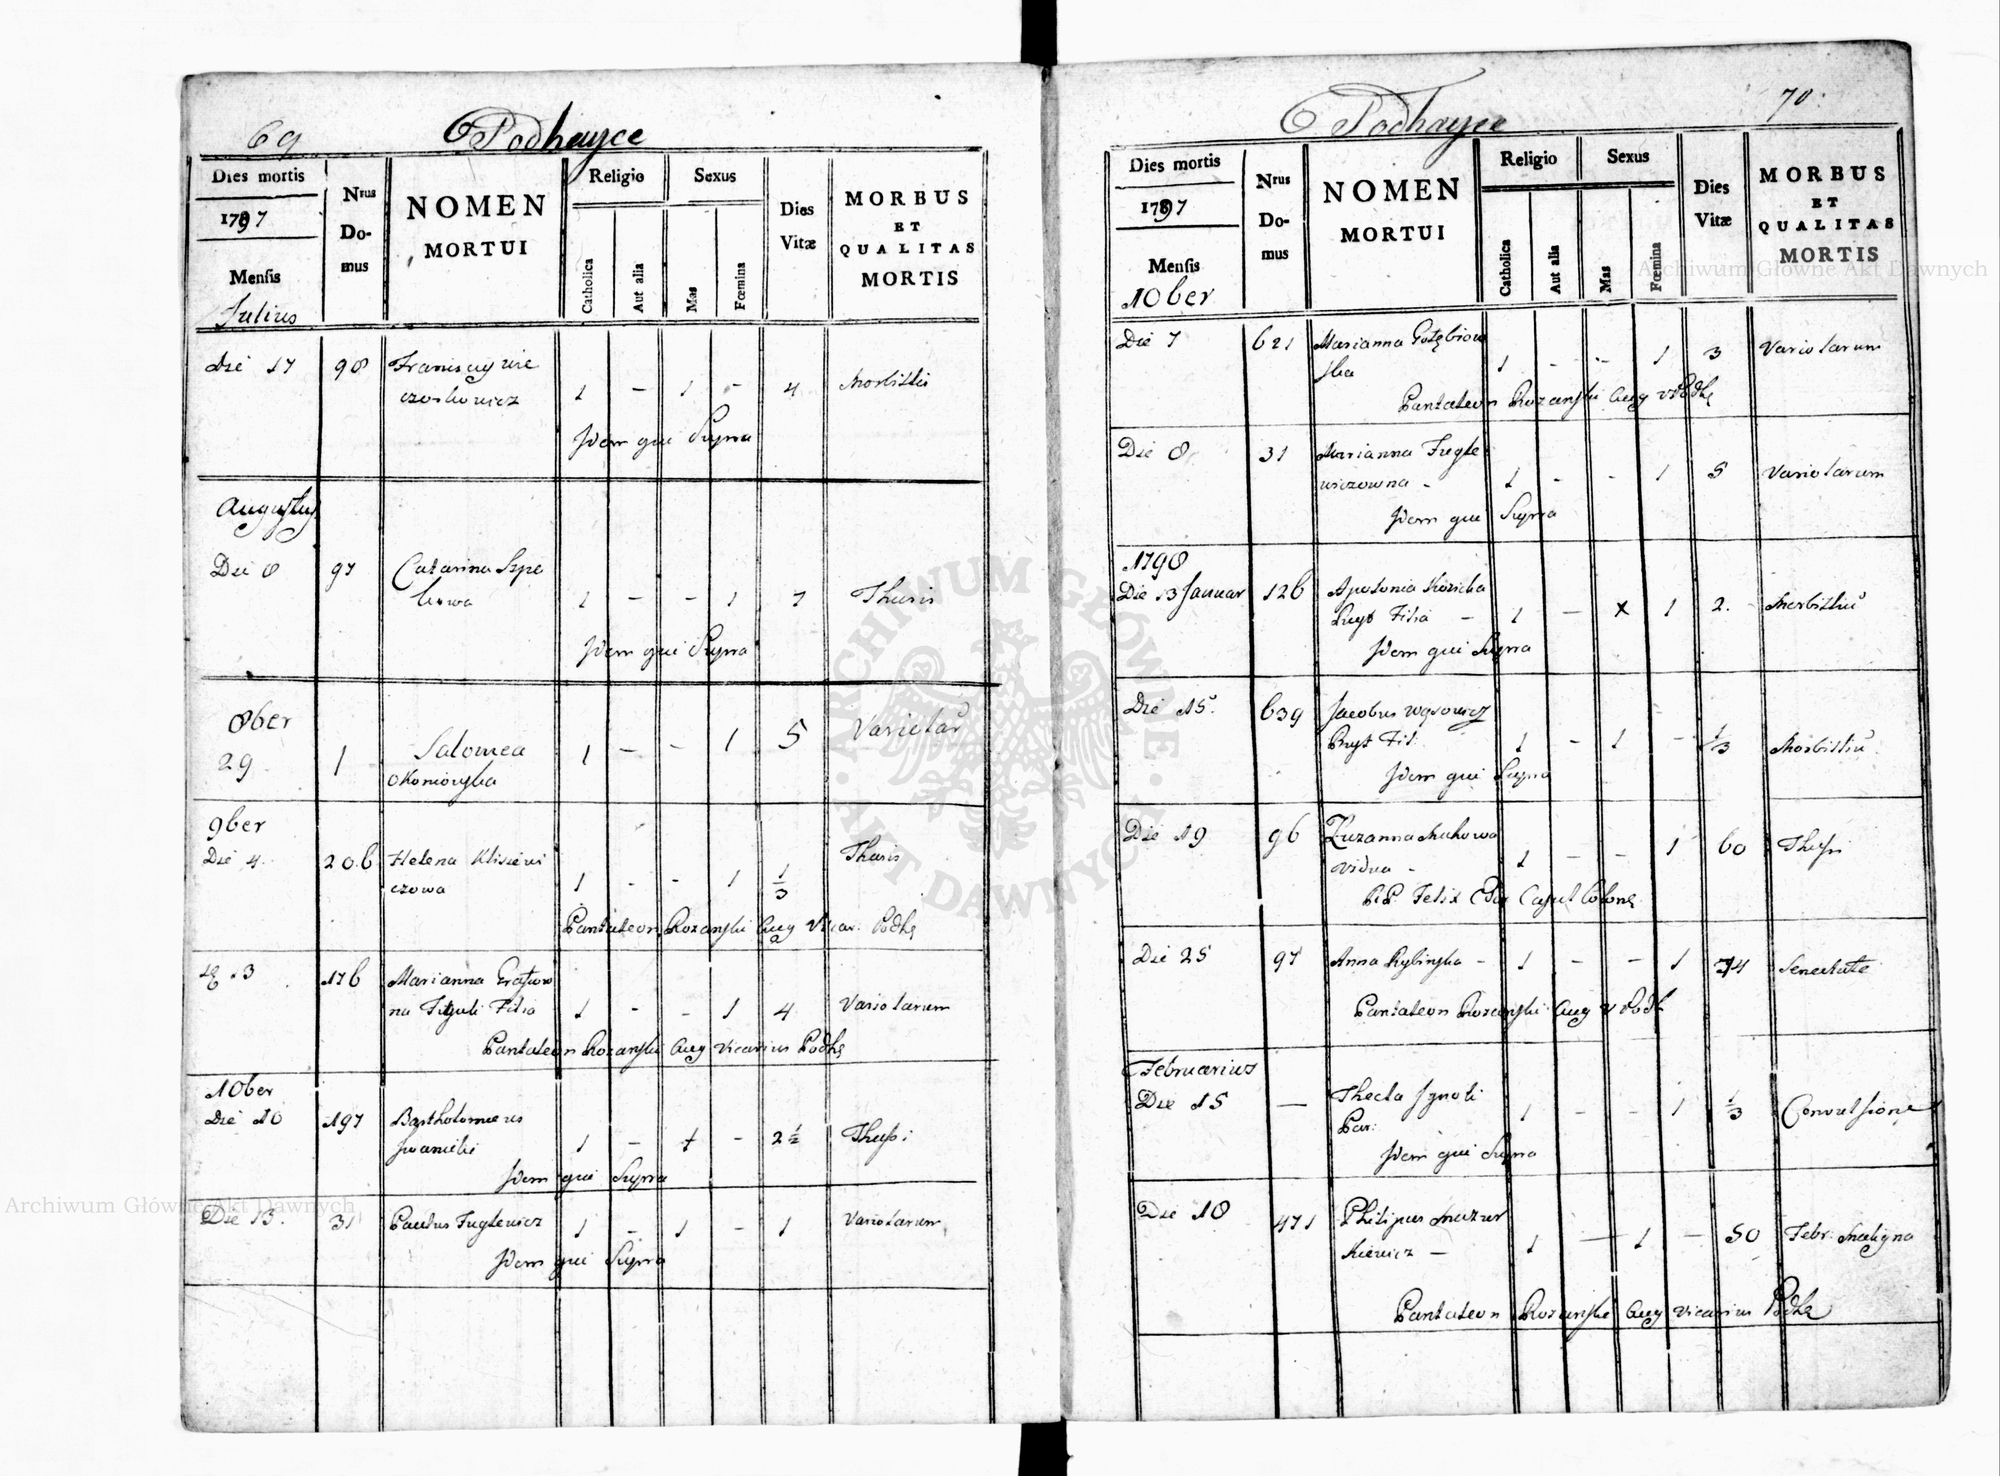 69
Podhayce
Dies mortis
1797
Mensis
Julius
Nrus Do-mus
NOMEN
MORTUI
Religio
Catholica
Aut alia
Sexus
Mas
Fœmina
Dies
Vitæ
MORBUS
ET
QUALITAS
MORTIS
Die 17 98 1 - 1 - 4
Idem qui Supra
Augustus
Die 8 97 Catarina Szpe
1 - - 1 7 Thusis
Idem qui Supra
8ber
29 1 Salomea 1 - - 1 5
9ber
Die 4 206 Helena
czowa 1 - - 1 1/3 Thusis
Pantaleon Rozanski Aug Vicar: Podh
13 176 Marianna
na Figuli Filia 1 - - 1 4 Variolarum
Pantaleon Rozanski Aug Vicarius Podh
10ber
Die 10 197 Bartholomeus
1 - 1 - 2 1/2 Thussi
Idem qui Supra
Die 13. 31 Paulus Fuglewicz 1 - 1 - 1 Variolarum
Idem qui Supra
70
Podhayce
Dies mortis
1797
Mensis
10ber
Nrus
Do-
mus
NOMEN
MORTUI
Religio
Catholica
Aut alia
Sexus
Mas
Fœmina
Dies
Vitæ
MORBUS
ET
QUALITAS
MORTIS
Die 7 621 Marianna Gołębiow
ska 1 - - 1 3 Variolarum
Pantaleon Rozanski Aug V Podh
Die 8 31 Marianna Fugle
wiczowna - 1 - - 1 5 Variolarum
Idem qui Supra
1798
Die 13 Januar 126 Apolonia
Filia - 1 - x 1 2.
Idem qui Supra
Die 15 639 Jacobus Wąsowicz
Fil: 1 - 1 - 1/3
Idem qui Supra
Die 19 96 Zuzanna
vidua - 1 - - 1 60 Thussi
Die 25 97 Anna Rybinska - 1 - - 1 74 Senectute
Pantaleon Rozanski Aug V Podh
Februarius
Die 15 — Thecla Ignoti
Par: 1 - - 1 1/3 Convulsione
Idem qui Supra
Die 18 471 Philipus Mazur
kiewicz — 1 — 1 — 50 Febr: Maligna
Pantaleon Rozanski Aug Vicarius Podh
ARCHIWUM GŁÓWNE AKT DAWNYCH
Archiwum Główne Akt Dawnych
Archiwum Główne Akt Dawnych